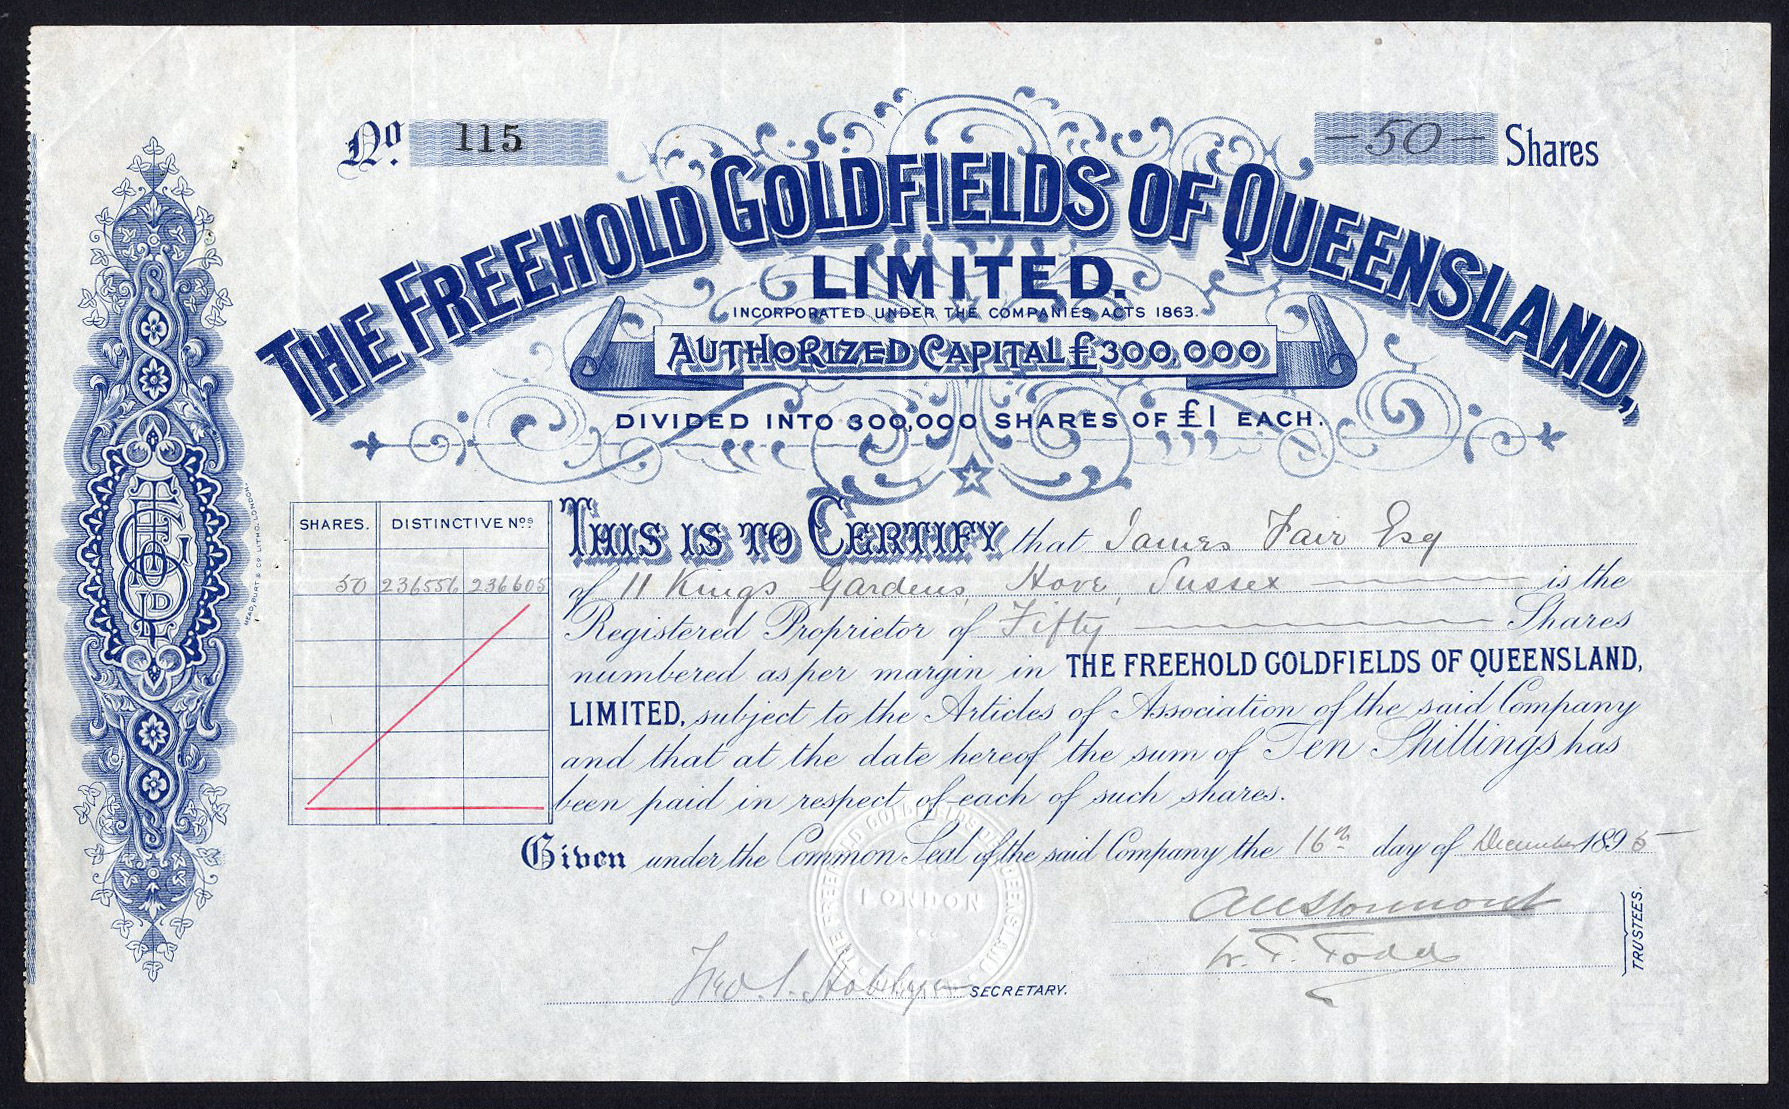 No. 115
-50- Shares
THE FREEHOLD GOLDFIELDS OF QUEENSLAND,
LIMITED.
INCORPORATED UNDER THE COMPANIES ACTS 1863.
AUTHORIZED CAPITAL £300,000
DIVIDED INTO 300,000 SHARES OF £1 EACH.
SHARES. DISTINCTIVE Nos
50 236556 236605
THIS IS TO CERTIFY that James Fair Esq
of 11 Kings Gardens, Hove, Sussex is the
Registered Proprietor of Fifty Shares
numbered as per margin in THE FREEHOLD GOLDFIELDS OF QUEENSLAND,
LIMITED, subject to the Articles of Association of the said Company
and that at the date hereof the sum of Ten Shillings has
been paid in respect of each of such shares.
Given under the Common Seal of the said Company the 16th day of December 1895
W. T. Todd
TRUSTEES.
SECRETARY.
THE FREEHOLD GOLDFIELDS OF QUEENSLAND
LONDON
MEAD, BURT & CO. LITHO. LONDON.